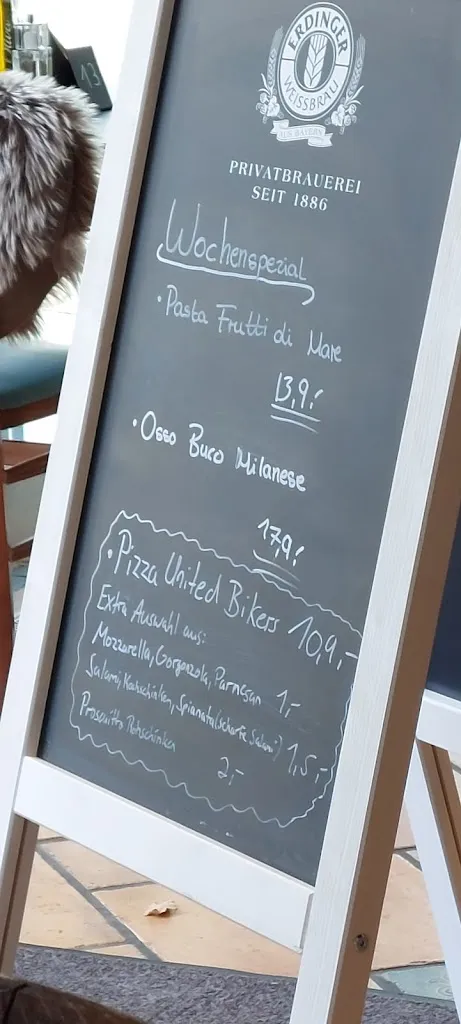 13
ERDINGER
WEISSBRÄU
AUS BAYERN
PRIVATBRAUEREI
SEIT 1886
Wochenspezial
· Pasta Frutti di Mare
13,9.-
· Osso Buco Milanese
17,9.-
· Pizza United Bikers 10,9,-
Extra Auswahl aus:
Mozzarella, Gorgonzola, Parmesan 1,-
Salami, Kochschinken, Spianata (scharfe Salami) 1,5,-
Prosciutto Rohschinken
2,-